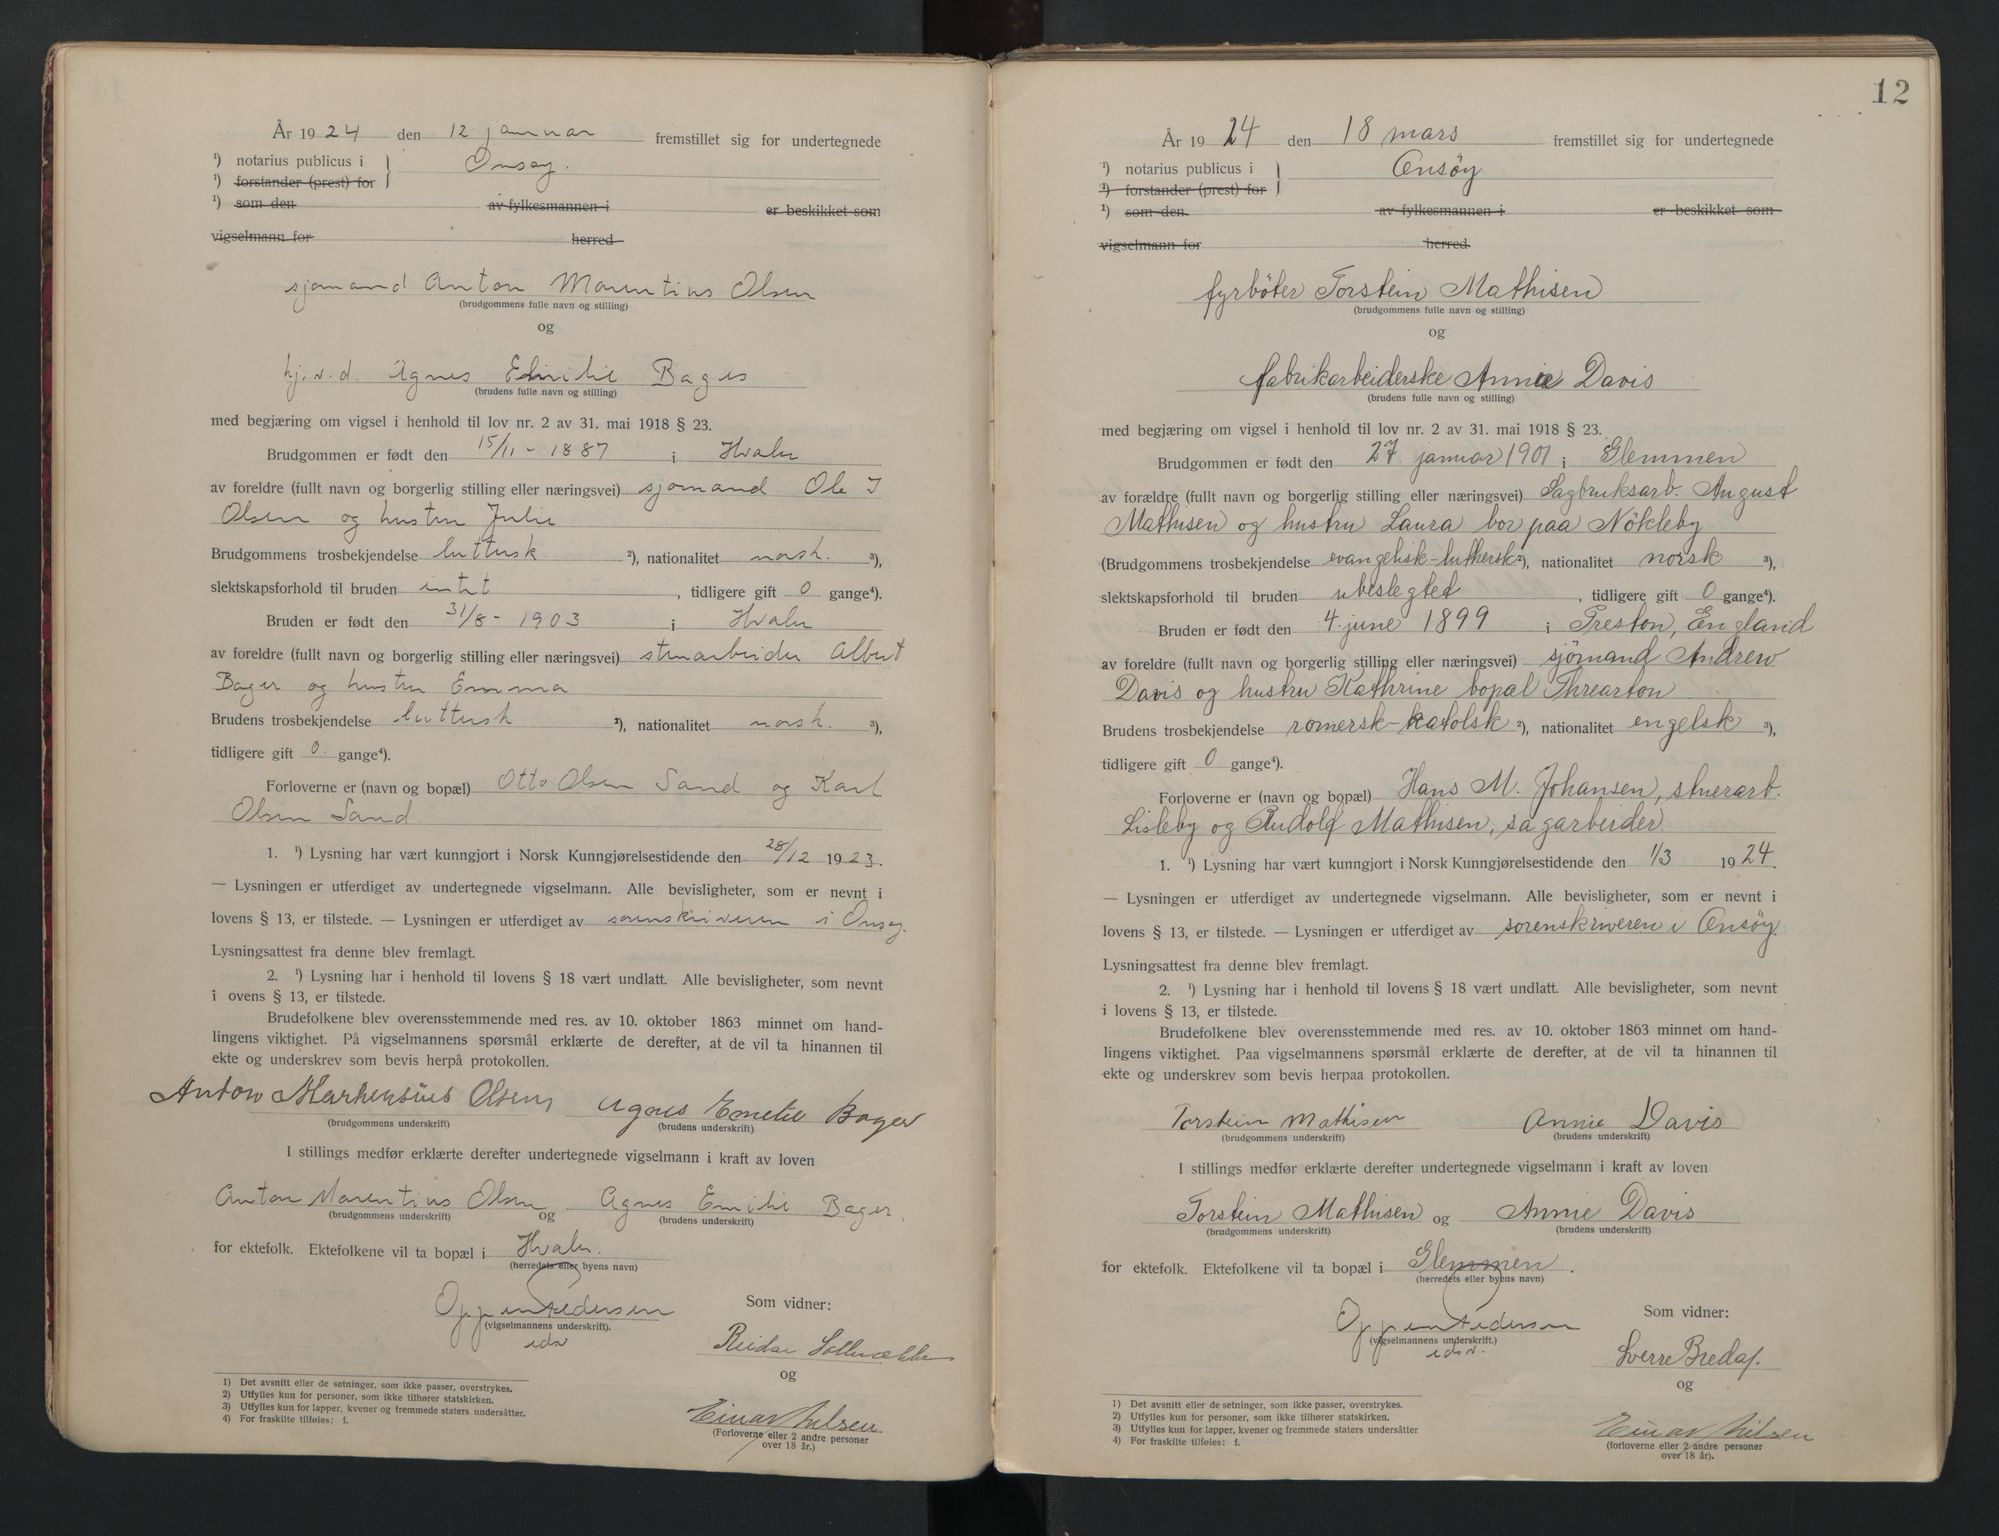 År 1924 den 12 januar fremstillet sig for undertegnede
¹) notarius publicus i } Onsøy.
¹) forstander (prest) for
¹) som den av fylkesmannen i er beskikket som
vigselmann for herred
sjømand Anton Marentius Olsen
(brudgommens fulle navn og stilling)
og
hj.v.d. Agnes Emilie Bager
(brudens fulle navn og stilling)
med begjæring om vigsel i henhold til lov nr. 2 av 31. mai 1918 § 23.
Brudgommen er født den 15/11 - 1887 i Hvaler
av foreldre (fullt navn og borgerlig stilling eller næringsvei) sjømand Ole J
Olsen og hustru Julie
Brudgommens trosbekjendelse luttersk ²), nationalitet norsk. ³),
slektskapsforhold til bruden intet, tidligere gift 0 gange⁴).
Bruden er født den 31/8 - 1903 i Hvaler
av foreldre (fullt navn og borgerlig stilling eller næringsvei) stenarbeider Albert
Bager og hustru Emma
Brudens trosbekjendelse luttersk ²), nationalitet norsk. ³),
tidligere gift 0. gange⁴).
Forloverne er (navn og bopæl) Otto Olsen Sand og Karl
Olsen Sand.
1. ¹) Lysning har vært kunngjort i Norsk Kunngjørelsestidende den 28/12 1923.
— Lysningen er utferdiget av undertegnede vigselmann. Alle bevisligheter, som er nevnt i
lovens § 13, er tilstede. — Lysningen er utferdiget av sorenskriveren i Onsøy.
Lysningsattest fra denne blev fremlagt.
2. ¹) Lysning har i henhold til lovens § 18 vært undlatt. Alle bevisligheter, som nevnt
i ovens § 13, er tilstede.
Brudefolkene blev overensstemmende med res. av 10. oktober 1863 minnet om hand-
lingens viktighet. På vigselmannens spørsmål erklærte de derefter, at de vil ta hinannen til
ekte og underskrev som bevis herpå protokollen.
Anton Olsen Agnes Emelie Bager
(brudgommens underskrift) (brudens underskrift)
I stillings medfør erklærte derefter undertegnede vigselmann i kraft av loven
Anton Marentius Olsen og Agnes Emilie Bager.
(brudgommens underskrift) (brudens underskrift)
for ektefolk. Ektefolkene vil ta bopæl i Hvaler.
(herredets eller byens navn)
Oppen Pedersen
(vigselmannens underskrift).
Som vidner:
Reidar
og
Einar Nilsen
(Forloverne eller 2 andre personer
over 18 år.)
1) Det avsnitt eller de setninger, som ikke passer, overstrykes.
2) Utfylles kun for personer, som ikke tilhører statskirken.
3) Utfylles kun for lapper, kvener og fremmede staters undersåtter.
4) For fraskilte tilføies: f.
12
År 1924 den 18 mars fremstillet sig for undertegnede
¹) notarius publicus i } Onsöy
¹) forstander (prest) for
¹) som den av fylkesmannen i er beskikket som
vigselmann for herred.
fyrböter Torstein Mathisen
(brudgommens fulle navn og stilling)
og
fabrikarbeiderske Annie Davis
(brudens fulle navn og stilling)
med begjæring om vigsel i henhold til lov nr. 2 av 31. mai 1918 § 23.
Brudgommen er født den 27. januar 1901 i Glemmen
av forældre (fullt navn og borgerlig stilling eller næringsvei) Sagbruksarb. August
Mathisen og hustru Laura bor paa Nökleby
(Brudgommens trosbekjendelse evangelisk-luthersk ²), nationalitet norsk ³),
slektskapsforhold til bruden ubeslegtet, tidligere gift 0 gange⁴).
Bruden er født den 4. june 1899 i Preston, England
av foreldre (fullt navn og borgerlig stilling eller næringsvei) sjömand Andrew
Davis og hustru Kathrine bopæl Threarton
Brudens trosbekjendelse romersk-katolsk ²), nationalitet engelsk ³),
tidligere gift 0 gange⁴).
Forloverne er (navn og bopæl) Hans M. Johansen, stuerarb.
Lisleby og Rudolf Mathisen, sagarbeider
1. ¹) Lysning har vært kunngjort i Norsk Kunngjørelsestidende den 1/3 1924.
— Lysningen er utferdiget av undertegnede vigselmann. Alle bevisligheter, som er nevnt i
lovens § 13, er tilstede. — Lysningen er utferdiget av sorenskriveren i Onsöy.
Lysningsattest fra denne blev fremlagt.
2. ¹) Lysning har i henhold til lovens § 18 vært undlatt. Alle bevisligheter, som nevnt
i lovens § 13, er tilstede.
Brudefolkene blev overensstemmende med res. av 10. oktober 1863 minnet om hand-
lingens viktighet. Paa vigselmannens spørsmål erklærte de derefter, at de vil ta hinannen til
ekte og underskrev som bevis herpaa protokollen.
Torstein Mathisen Annie Davis
(brudgommens underskrift) (brudens underskrift)
I stillings medfør erklærte derefter undertegnede vigselmann i kraft av loven
Torstein Mathisen og Annie Davis
(brudgommens underskrift) (brudens underskrift)
for ektefolk. Ektefolkene vil ta bopæl i Glemmen.
(herredets eller byens navn)
Oppen Pedersen
(vigselmannens underskrift.)
Som vidner:
Sverre
og
Einar Nilsen
(forloverne eller 2 andre personer
over 18 år).
1) Det avsnitt eller de setninger, som ikke passer, overstrykes.
2) Utfylles kun for personer, som ikke tilhører statskirken.
3) Utfylles kun for lapper, kvener og fremmede staters undersåtter
4) For fraskilte tilføies: f.